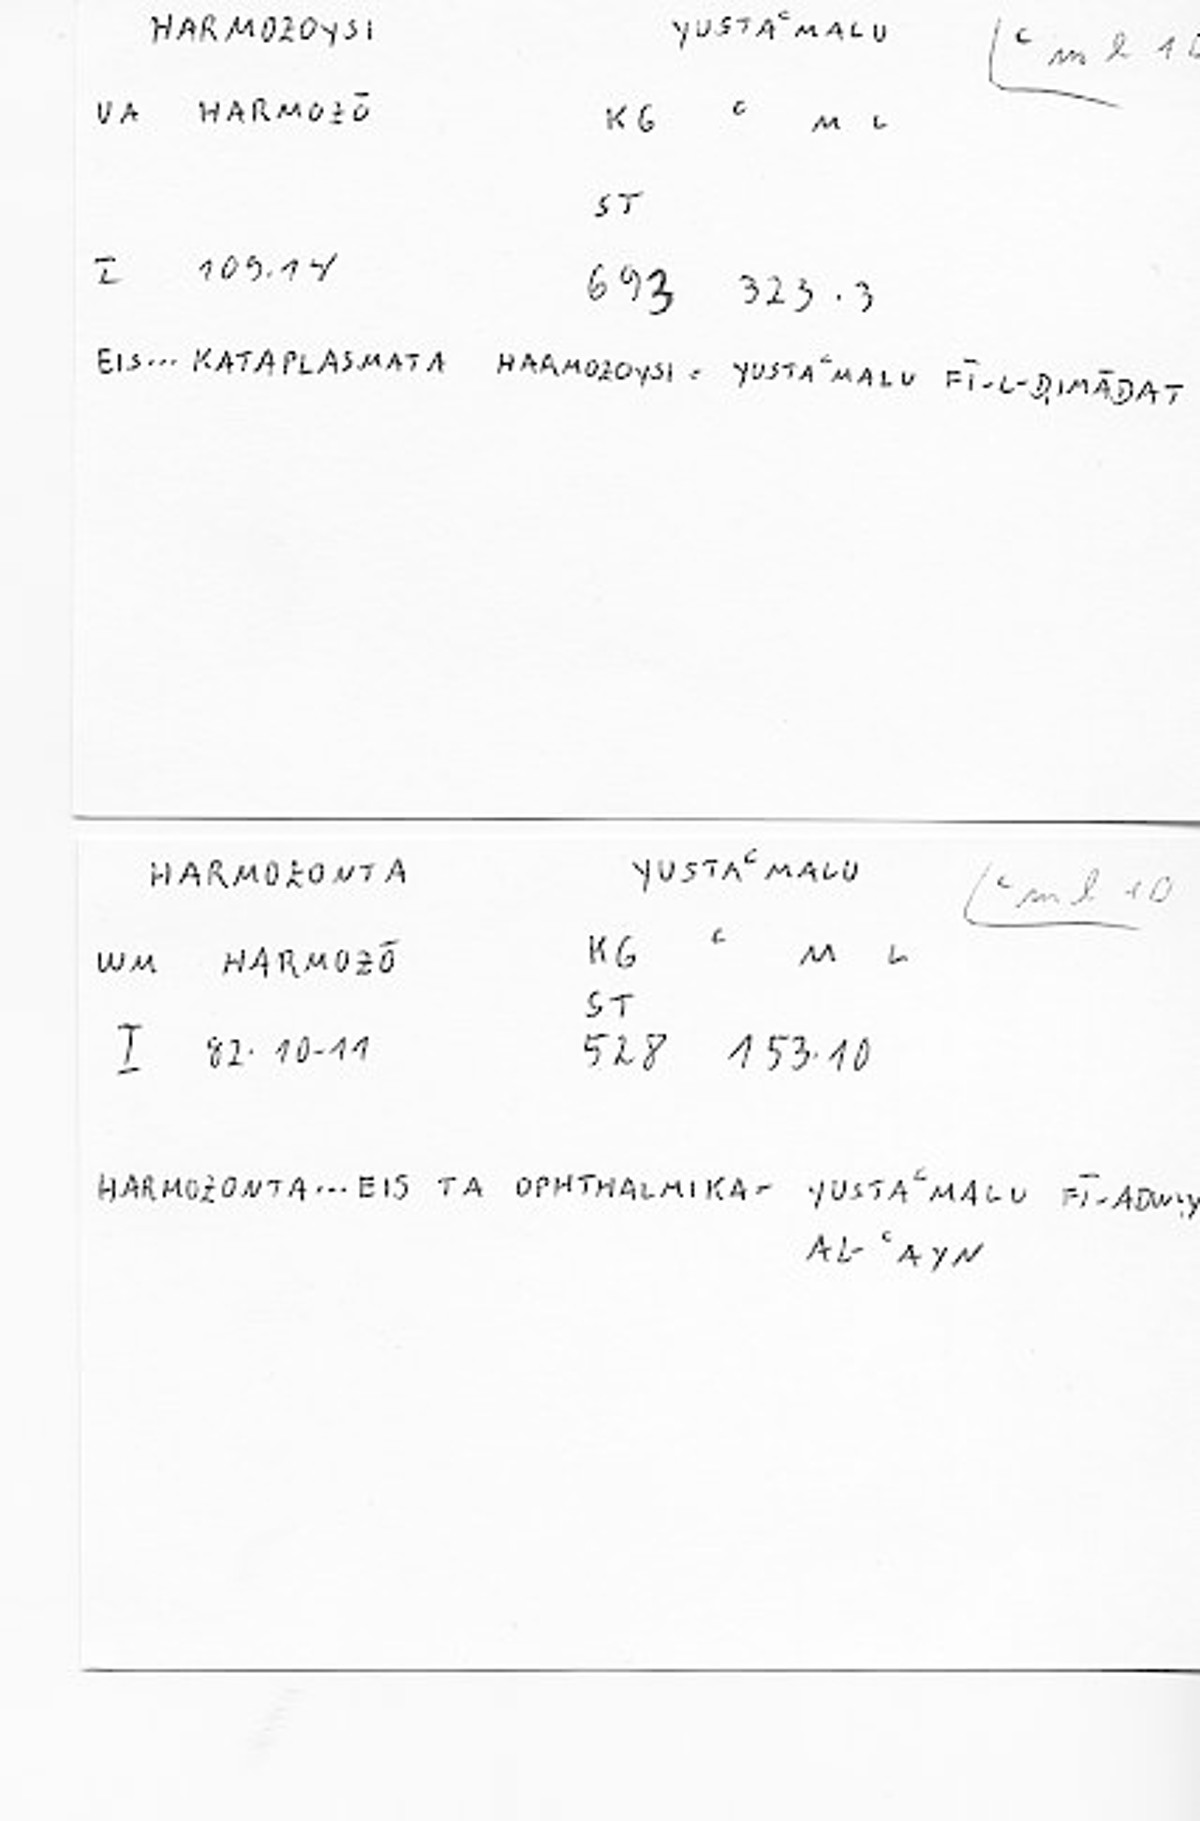 HARMOZOYSI YUSTAᶜMALU ᶜ m l 10
VA HARMOZŌ KG ᶜ M L
ST
I 109.14 693 323.3
EIS... KATAPLASMATA HARMOZOYSI = YUSTAᶜMALU FĪ-L-ḌIMĀDAT
HARMOZONTA YUSTAᶜMALU ᶜ m l 10
WM HARMOZŌ KG ᶜ M L
ST
I 82.10-11 528 153.10
HARMOZONTA... EIS TA OPHTHALMIKA = YUSTAᶜMALU FĪ-ADWIY
AL-ᶜAYN